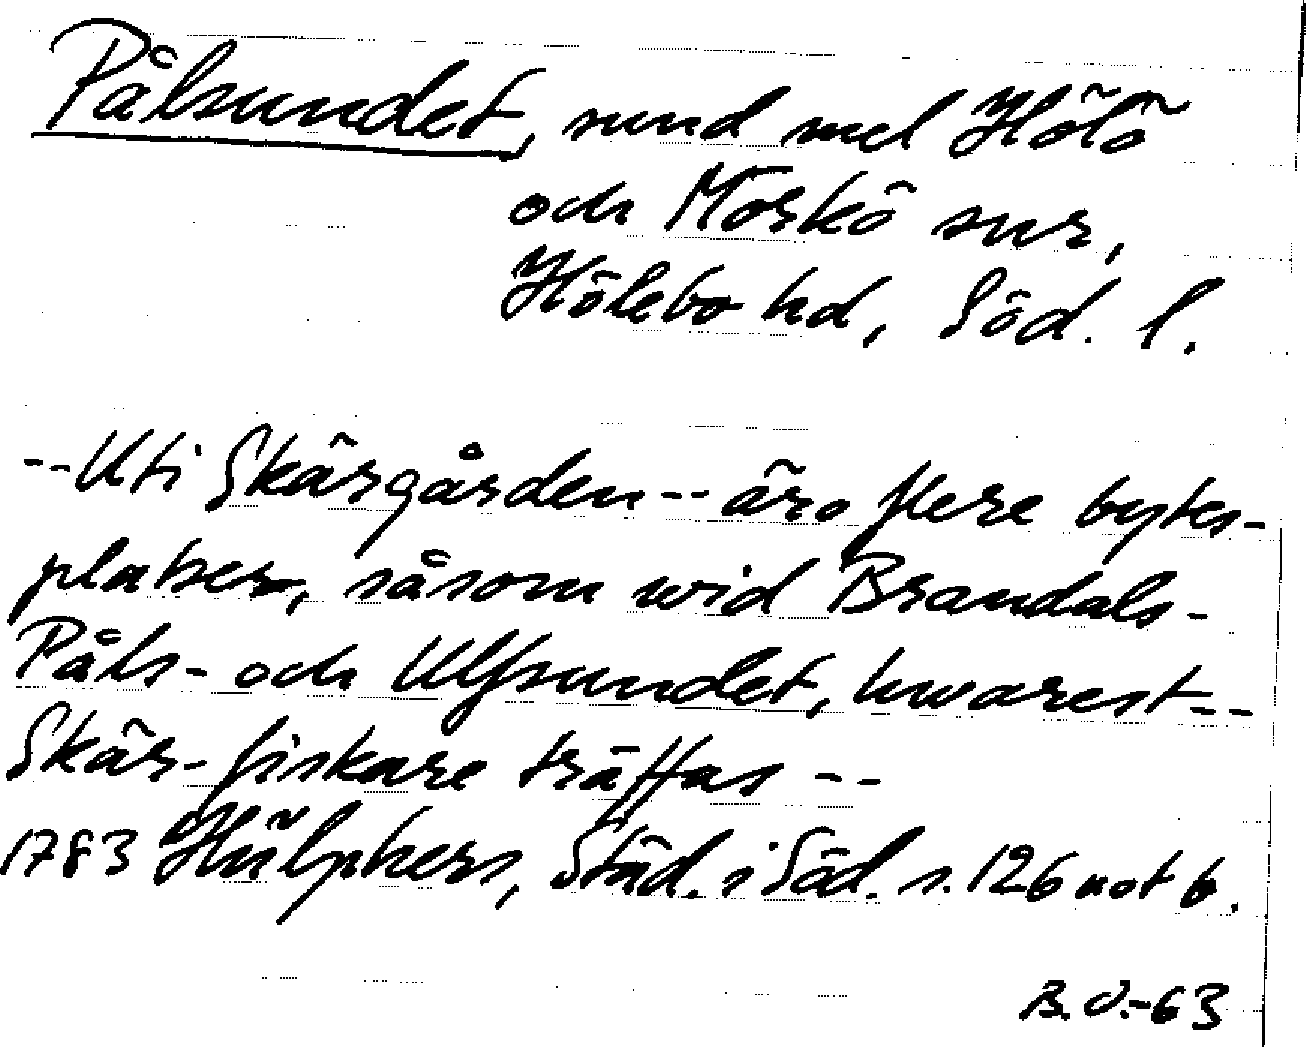 Pålsundet, sund mel Hölö
och Mörkö snr,
Hölebo hd, Söd. l.
--Uti Skärgården -- äro flere bytes-
platser, såsom wid Brandals-
Påls- och Ulfsundet, hwarest--
Skär-fiskare träffas --
1783 Hülphers, Städ. i Söd. s. 126 not b.
B.O.-63